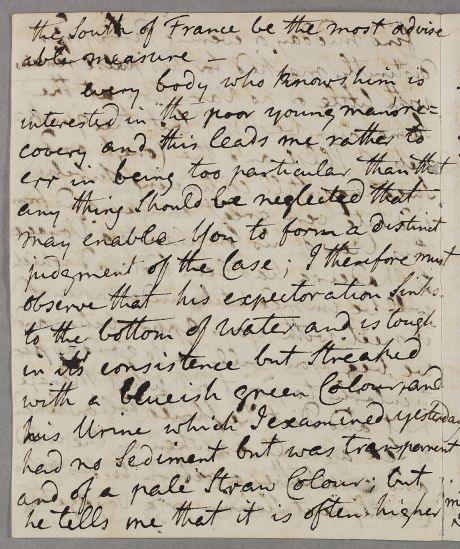 the South of France be the most advise
able measure –
every body who knows him is
interested in the poor young man's re-
covery and this leads me rather to
err in being too particular than that
any thing should be neglected that
may enable You to form a distinct
judgment of the Case; I therefore must
observe that his expectoration sinks
to the bottom of Water and is tough
in its consistence but streaked
with a blueish green Colour, and
his Urine which I examined yesterday
had no Sediment but was transparent
and of a pale Straw Colour; but
he tells me that it is often higher